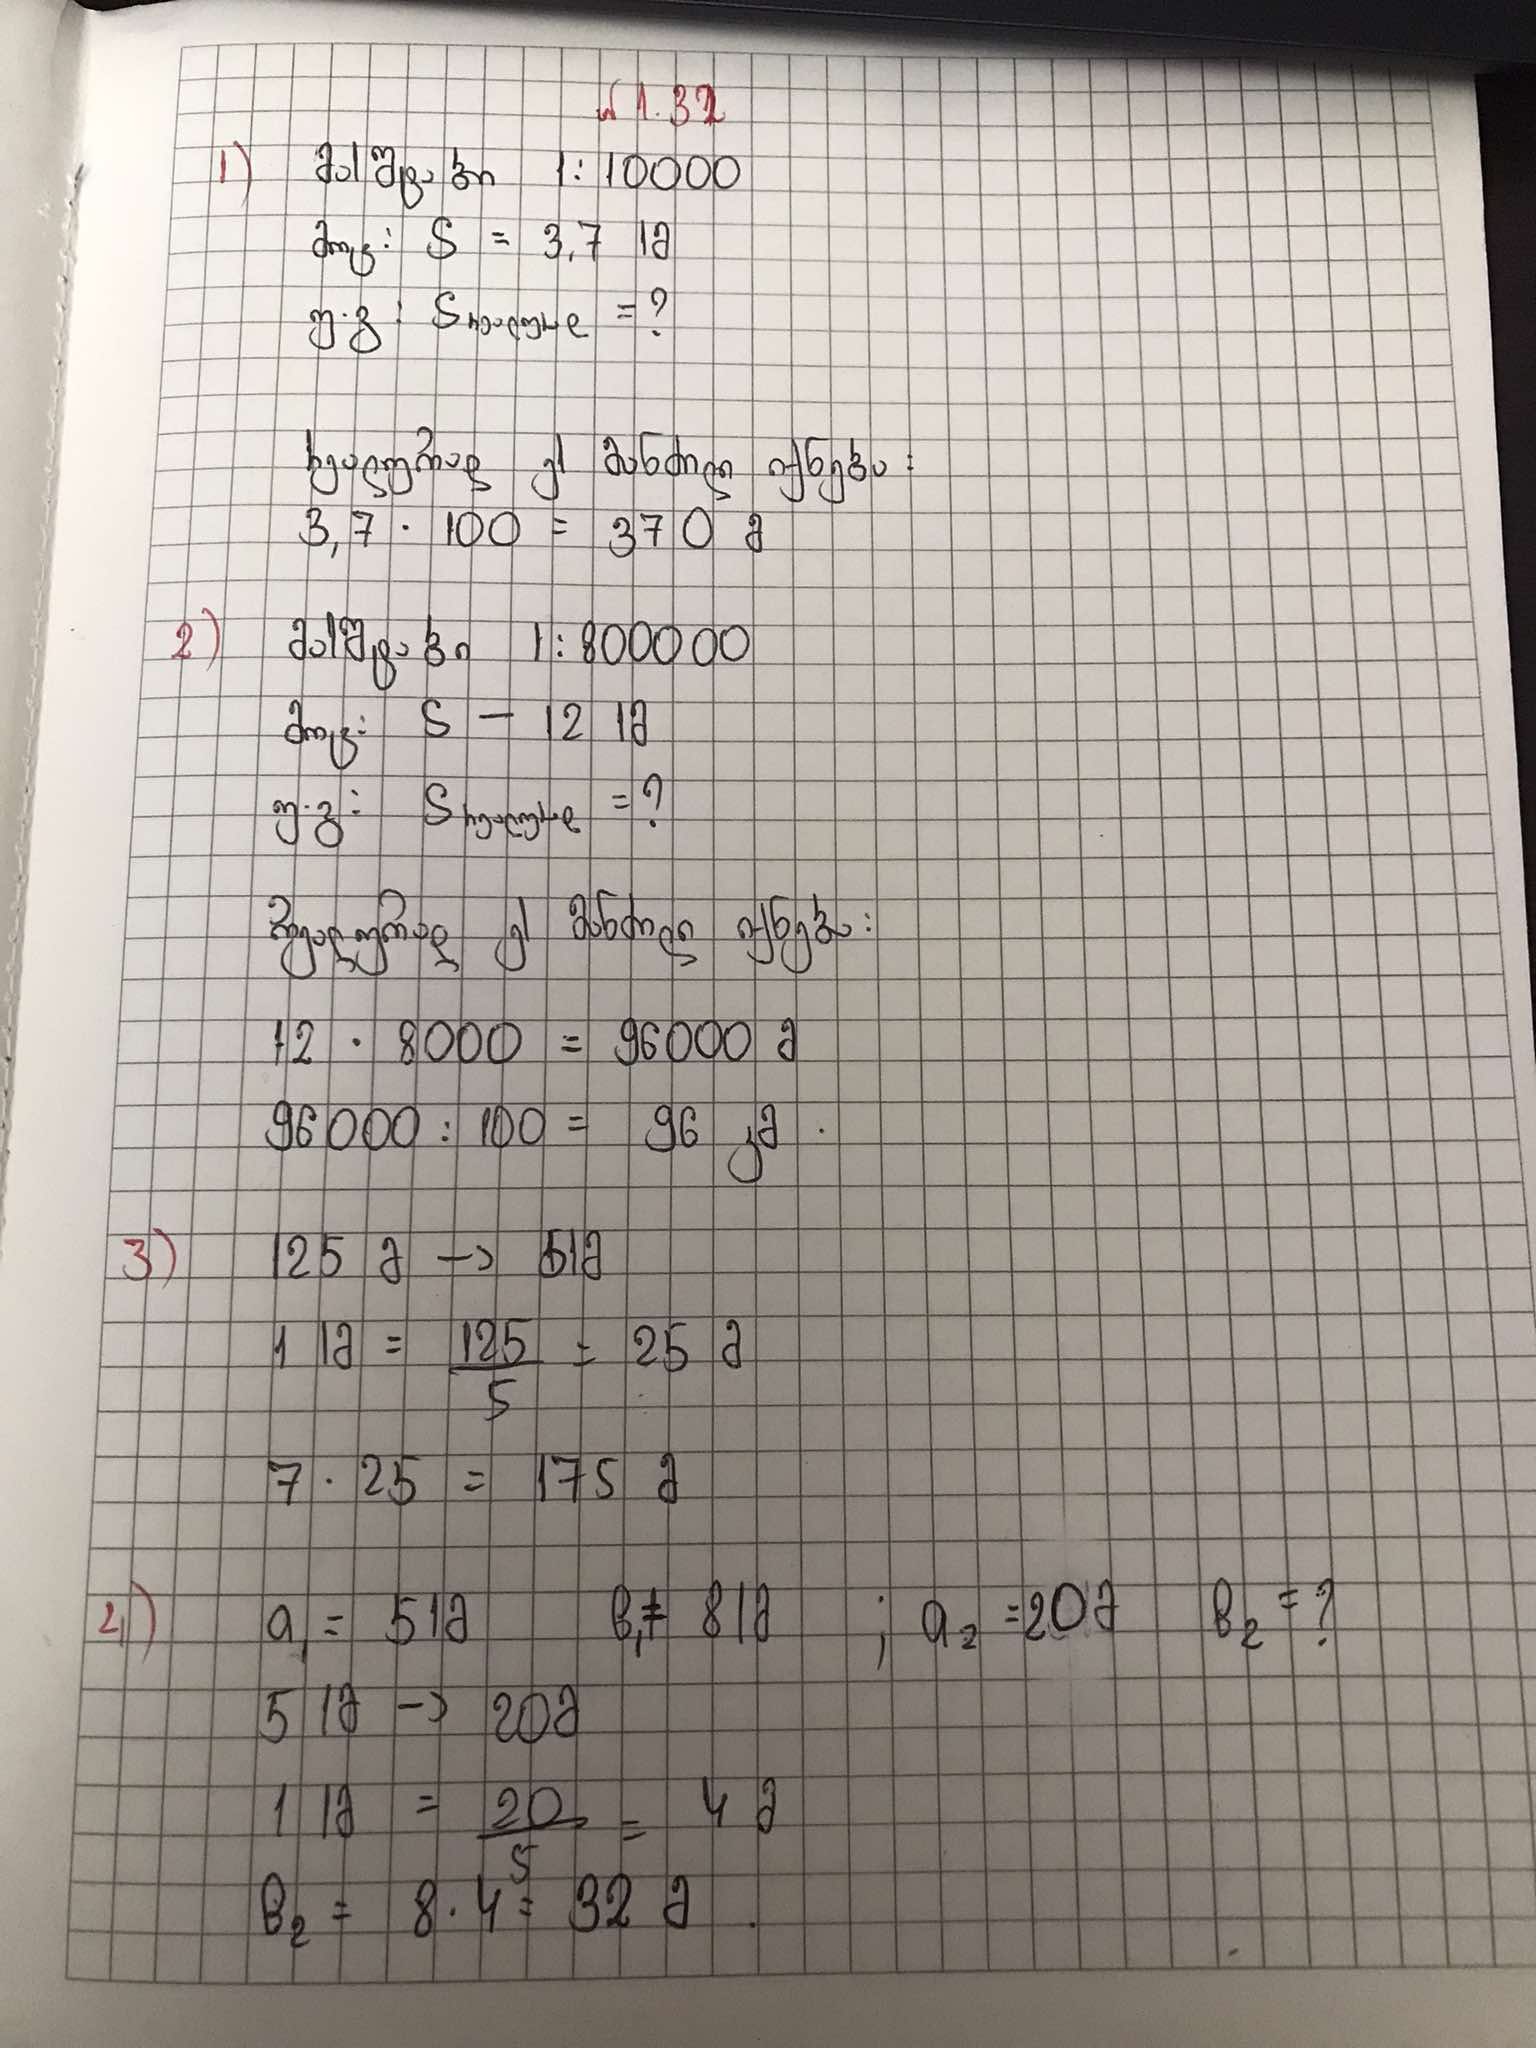 № 1.32
1) მასშტაბი 1:10000
მოც: S = 3,7 სმ
უ.გ: Sრეალურად = ?
რეალურად ეს მანძილი იქნება:
3,7 · 100 = 370 მ
2) მასშტაბი 1:800000
მოც: S – 12 სმ
უ.გ: Sრეალურად = ?
რეალურად ეს მანძილი იქნება:
12 · 8000 = 96000 მ
96000 : 100 = 96 კმ.
3) 125 მ → 5სმ
1 სმ = 125/5 = 25 მ
7 · 25 = 175 მ
4) a₁ = 5სმ b₁ = 8სმ ; a₂ = 20მ b₂ = ?
5 სმ → 20მ
1 სმ = 20/5 = 4 მ
b₂ = 8 · 4 = 32 მ.